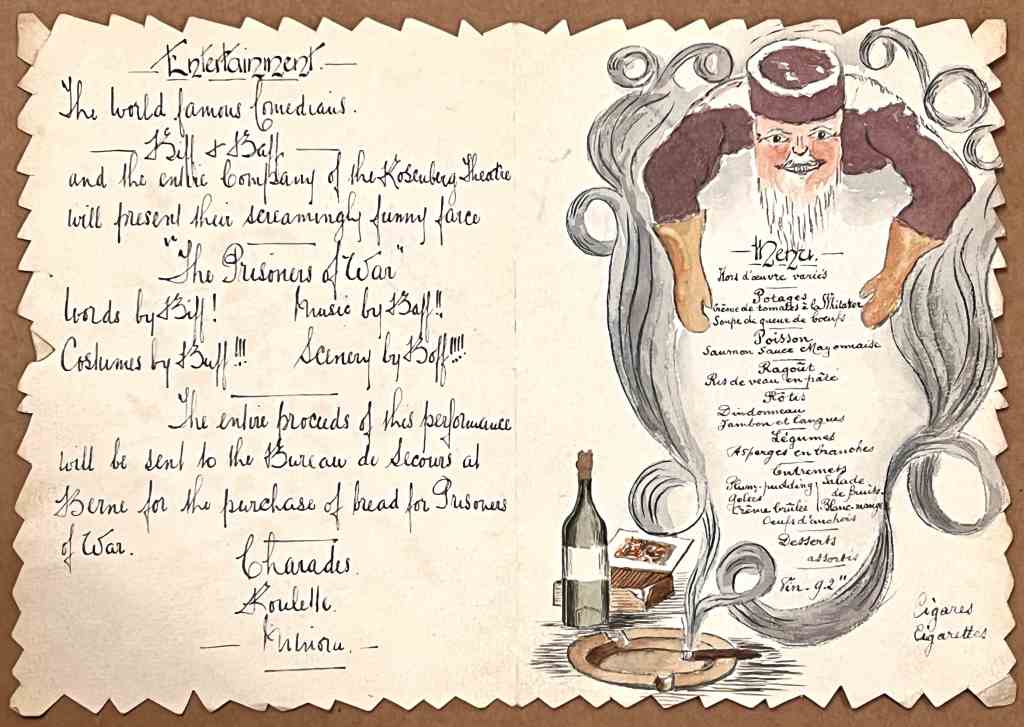 Entertainment.
The world famous Comedians.
Biff & Baff
and the entire Company of the Rosenberg Theatre
will present their screamingly funny farce
"The Prisoners of War"
Words by Biff! Music by Baff!!
Costumes by Buff!!! Scenery by Boff!!!!
The entire proceeds of this performance
will be sent to the Bureau de Secours at
Berne for the purchase of bread for Prisoners
of War.
Charades.
Roulette.
Menu.
Hors d'œuvre variés
Potages
Crème de tomates à la Whitaker
Soupe de queue de bœufs
Poisson
Saumon Sauce Mayonnaise
Ragoût
Ris de veau en pâté
Rôtis
Dindonneau
Jambon et langues
Légumes
Asperges en branches
Entremets
Plum-pudding, Salade
de fruits.
Gelées
Crème brûlée, Blanc-mange
Oeufs d'anchois
Desserts
assortis
Vin - 92"
Cigares
Cigarettes